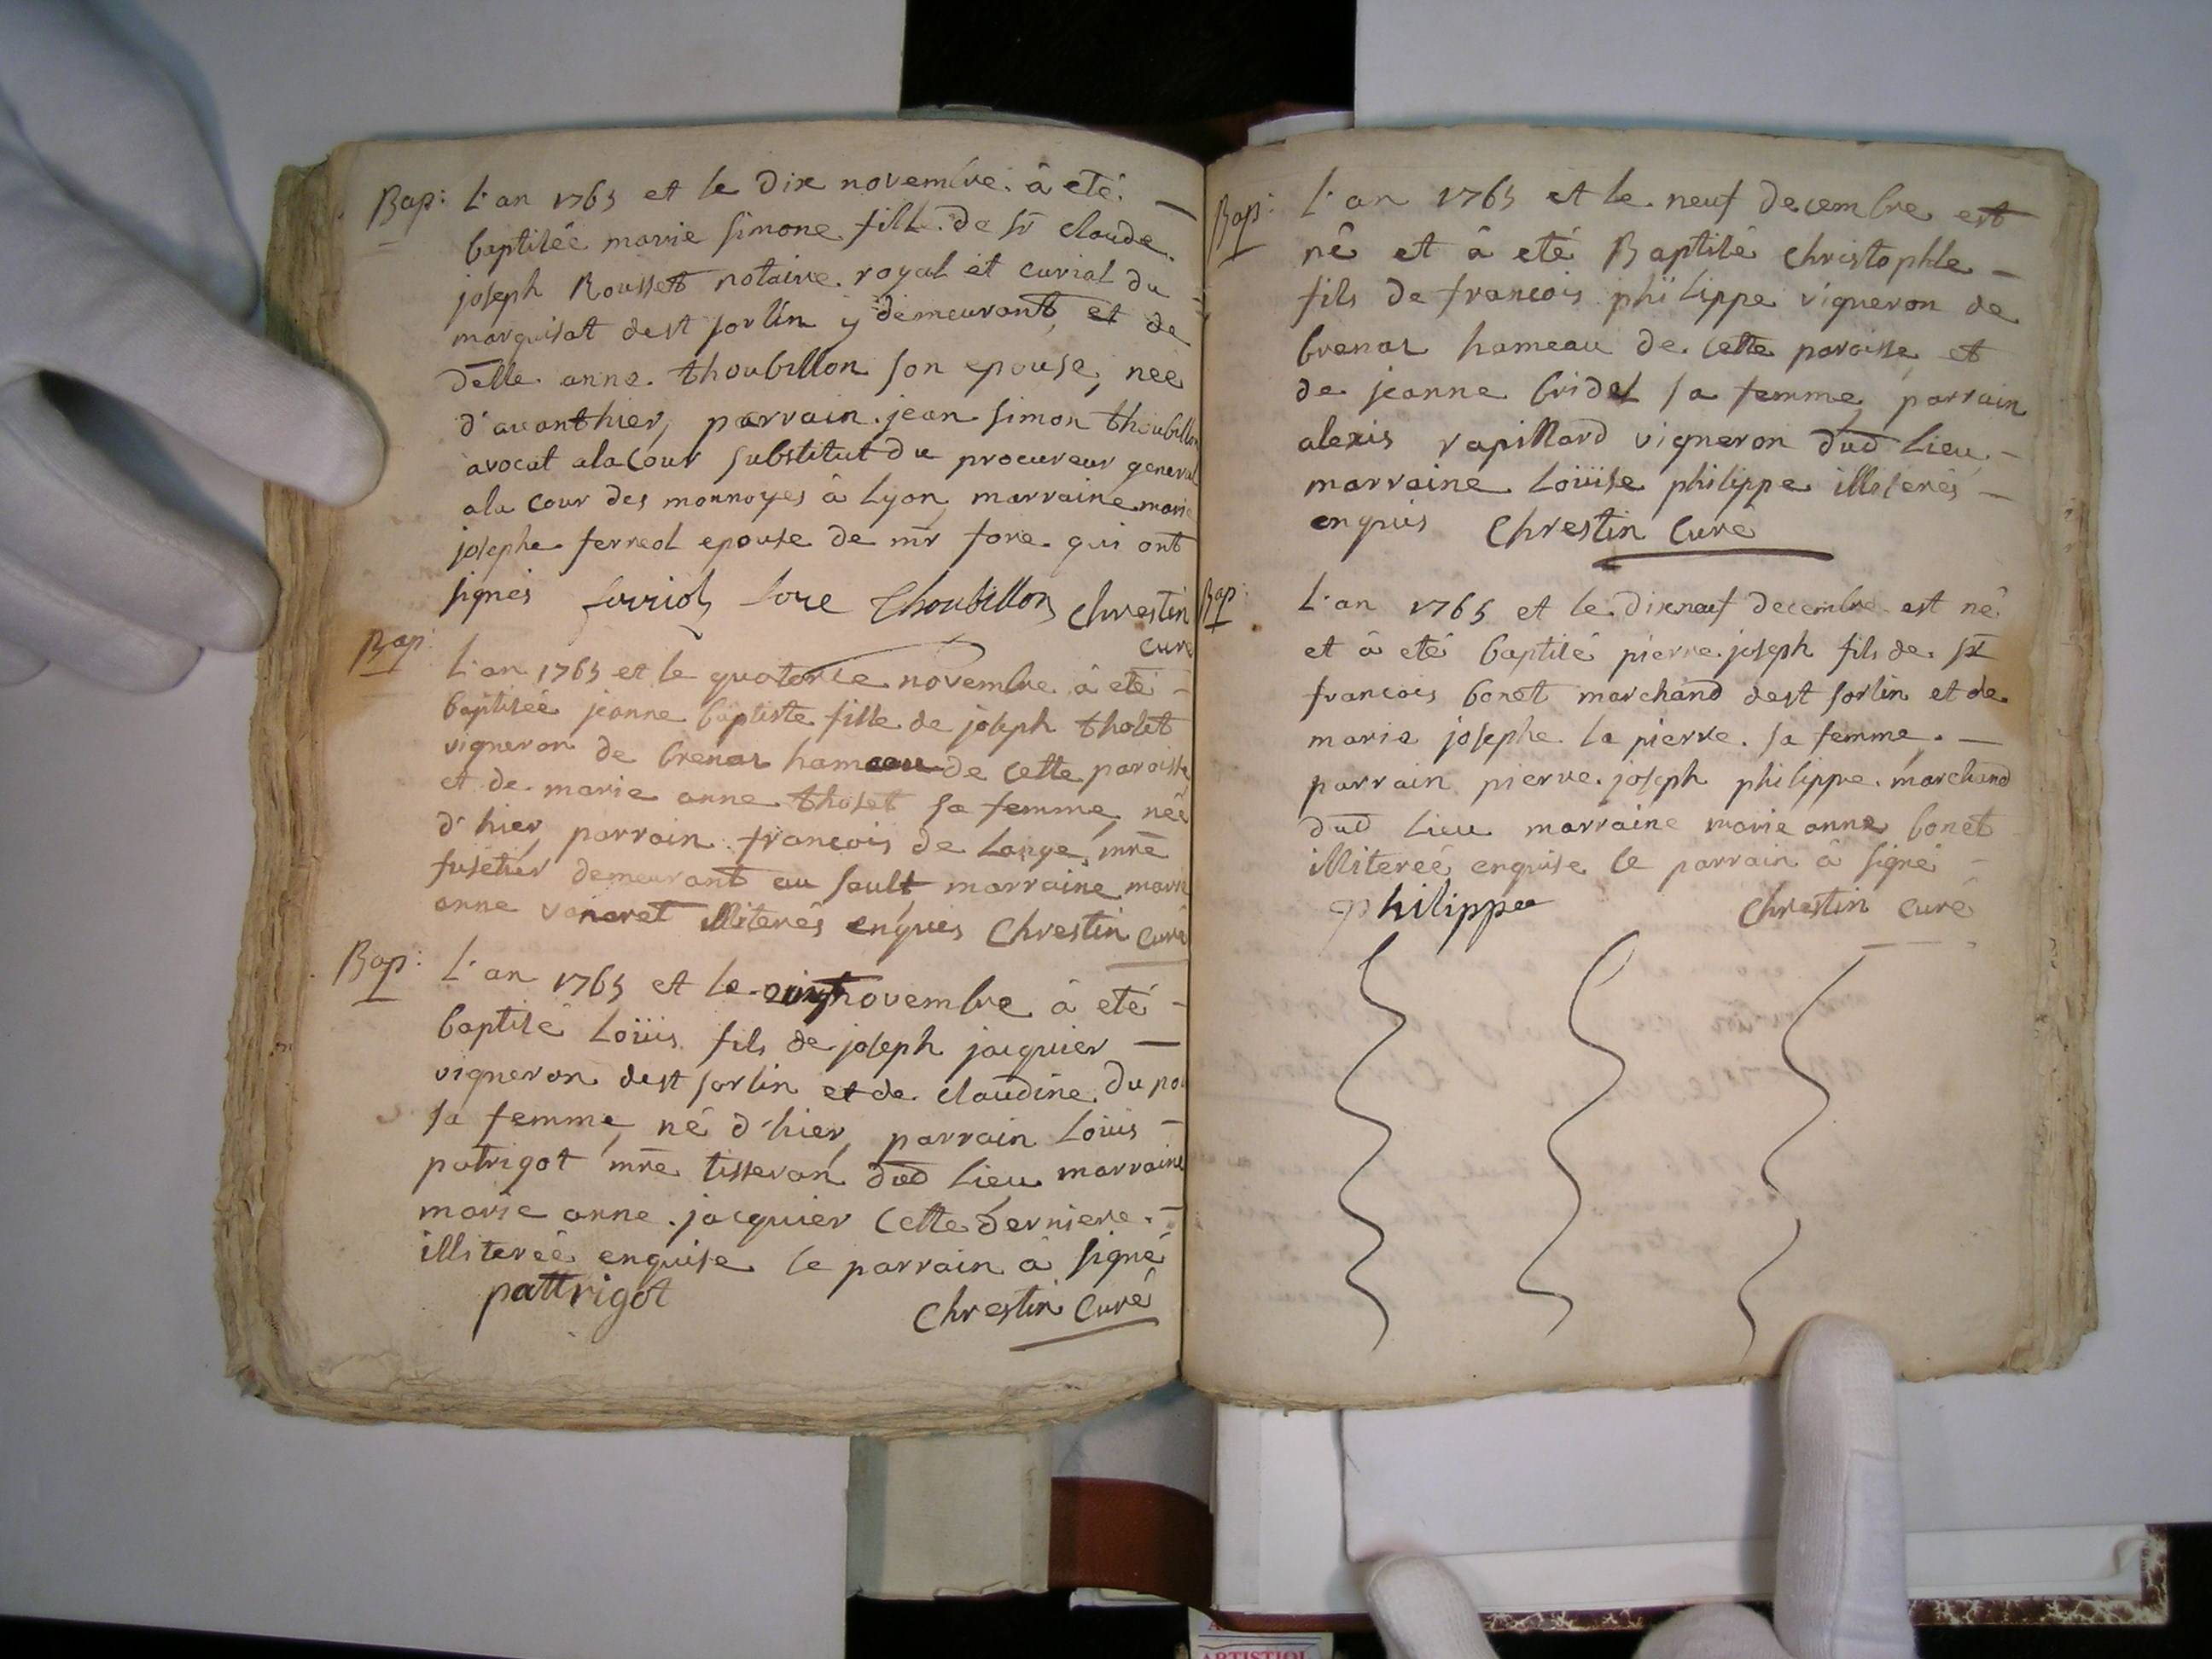 Bap: L'an 1765 et le dix novembre à eté
baptisée marie simone fille de sr claude
joseph Rousset notaire royal et curial du
marquisat de st sorlin y demeurant, et de
delle anne thoubillon son epouse, neé
d'avanthier, parrain jean simon thoubillon
avocat ala cour substitut du procureur general
ala cour des monnoyes à Lyon, marraine marie
josephe ferreol epouse de mr fore qui ont
signés fore Thoubillon Chrestin
curé
Bap: L'an 1765 et le quatorze novembre à eté
baptiseé jeanne baptiste fille de joseph tholet
vigneron de brenaz hameau de cette paroisse
et de marie anne tholet sa femme, neé
d'hier, parrain francois de Lange, mre
fusetier demeurant au sault, marraine marie
anne illiterés enquis Chrestin curé
Bap: L'an 1765 et le novembre à eté
baptisé Loüis fils de joseph jacquier
vigneron de st sorlin et de claudine
sa femme, né d'hier, parrain Loüis
patrigot mre tisseran dud lieu marraine
marie anne jacquier cette derniere
illitereé enquise le parrain à signé
pattrigot Chrestin Curé
Bap: L'an 1765 et le neuf decembre est
né et à eté Baptisé christophle
fils de francois philippe vigneron de
brenaz hameau de cette paroisse, et
de jeanne bridet sa femme, parrain
alexis rapillard vigneron dud lieu,
marraine Loüise philippe illiterés
enquis Chrestin Curé
Bap: L'an 1765 et le dixneuf decembre est né
et à eté baptisé pierre joseph fils de sr
francois bonet marchand de st sorlin et de
marie josephe la pierre sa femme.
parrain pierre joseph philippe marchand
dud lieu marraine marie anne bonet
illitereé enquise le parrain à signé
philippe Chrestin curé